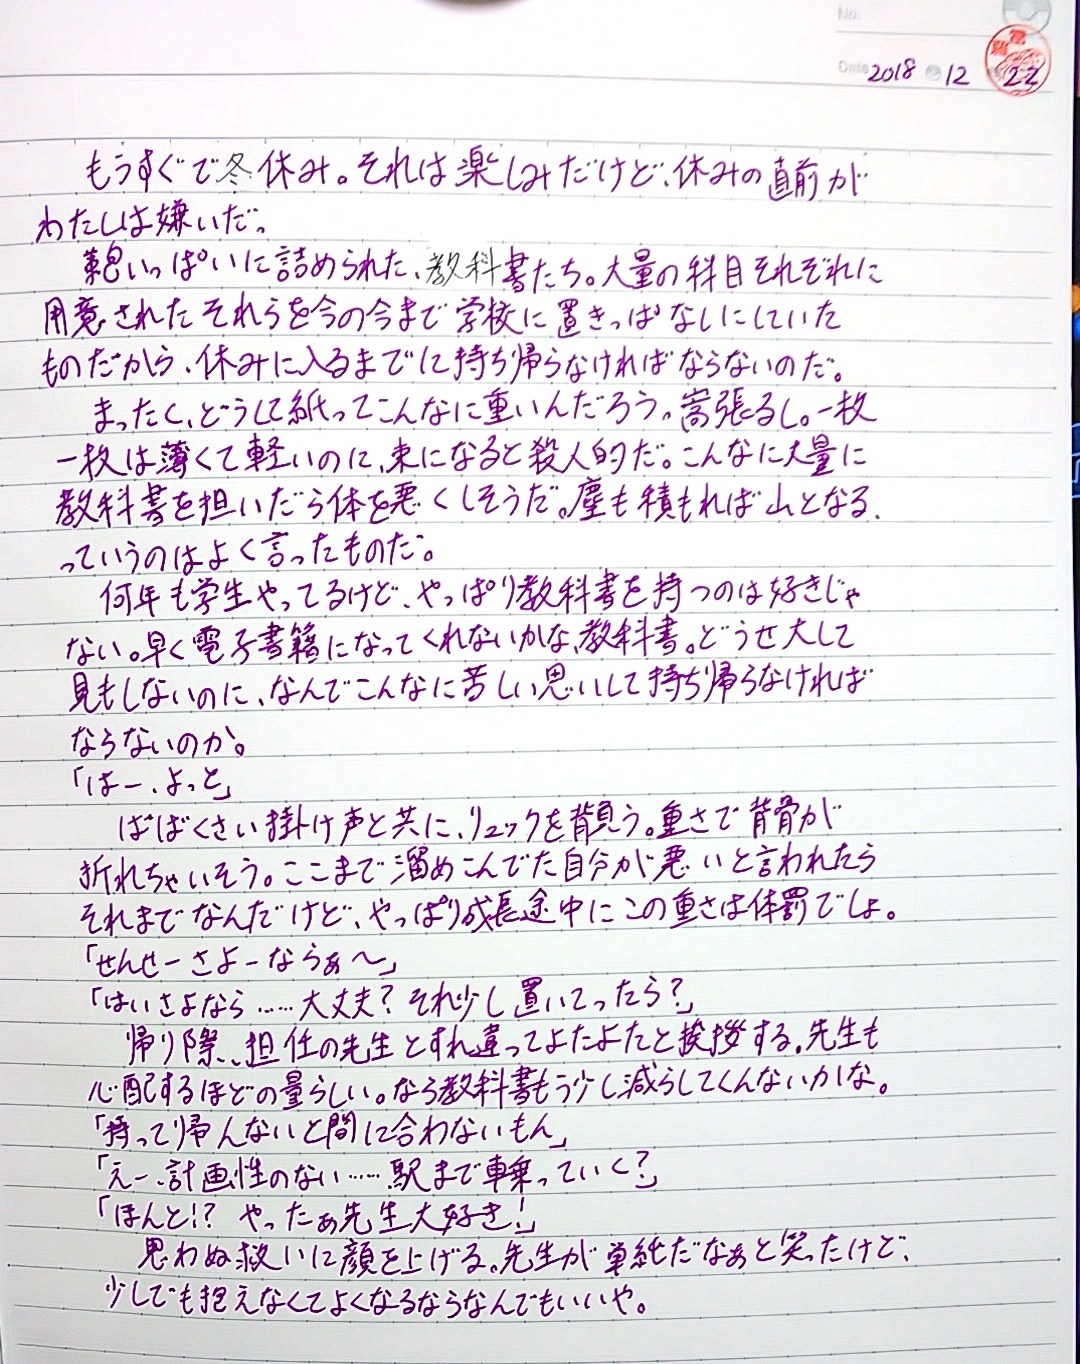 No.
Date 2018 12 22
もうすぐで冬休み。それは楽しみだけど、休みの直前が
わたしは嫌いだ。
鞄いっぱいに詰められた、教科書たち。大量の科目それぞれに
用意されたそれらを今の今まで学校に置きっぱなしにしていた
ものだから、休みに入るまでに持ち帰らなければならないのだ。
まったく、どうして紙ってこんなに重いんだろう。嵩張るし。一枚
一枚は薄くて軽いのに、束になると殺人的だ。こんなに大量に
教科書を担いだら体を悪くしそうだ。塵も積もれば山となる、
っていうのはよく言ったものだ。
何年も学生やってるけど、やっぱり教科書を持つのは好きじゃ
ない。早く電子書籍になってくれないかな、教科書。どうせ大して
見もしないのに、なんでこんなに苦しい思いして持ち帰らなければ
ならないのか。
「はー、よっと」
ばばくさい掛け声と共に、リュックを背負う。重さで背骨が
折れちゃいそう。ここまで溜めこんでた自分が悪いと言われたら
それまでなんだけど、やっぱり成長途中にこの重さは体罰でしょ。
「せんせーさよーならぁ〜」
「はいさよなら……大丈夫？それ少し置いてったら？」
帰り際、担任の先生とすれ違ってよたよたと挨拶する。先生も
心配するほどの量らしい。なら教科書もう少し減らしてくんないかな。
「持って帰んないと間に合わないもん」
「えー、計画性のない……駅まで車乗っていく？」
「ほんと!？ やったぁ先生大好き！」
思わぬ救いに顔を上げる。先生が単純だなぁと笑ったけど、
少しでも抱えなくてよくなるならなんでもいいや。